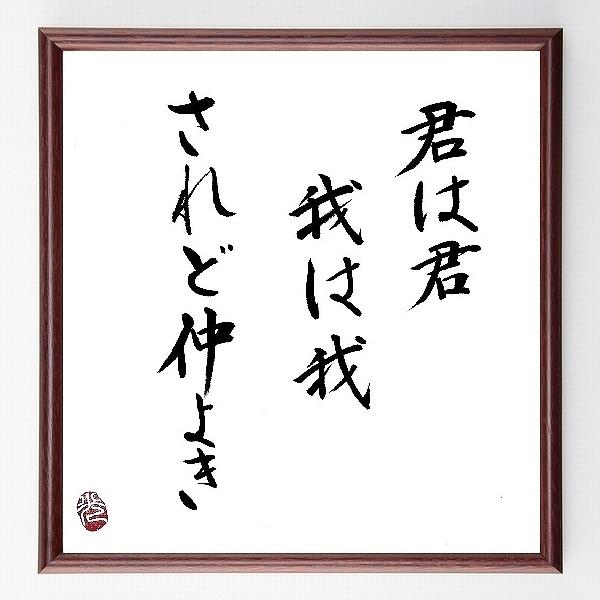 君は君
我は我
されど仲よき